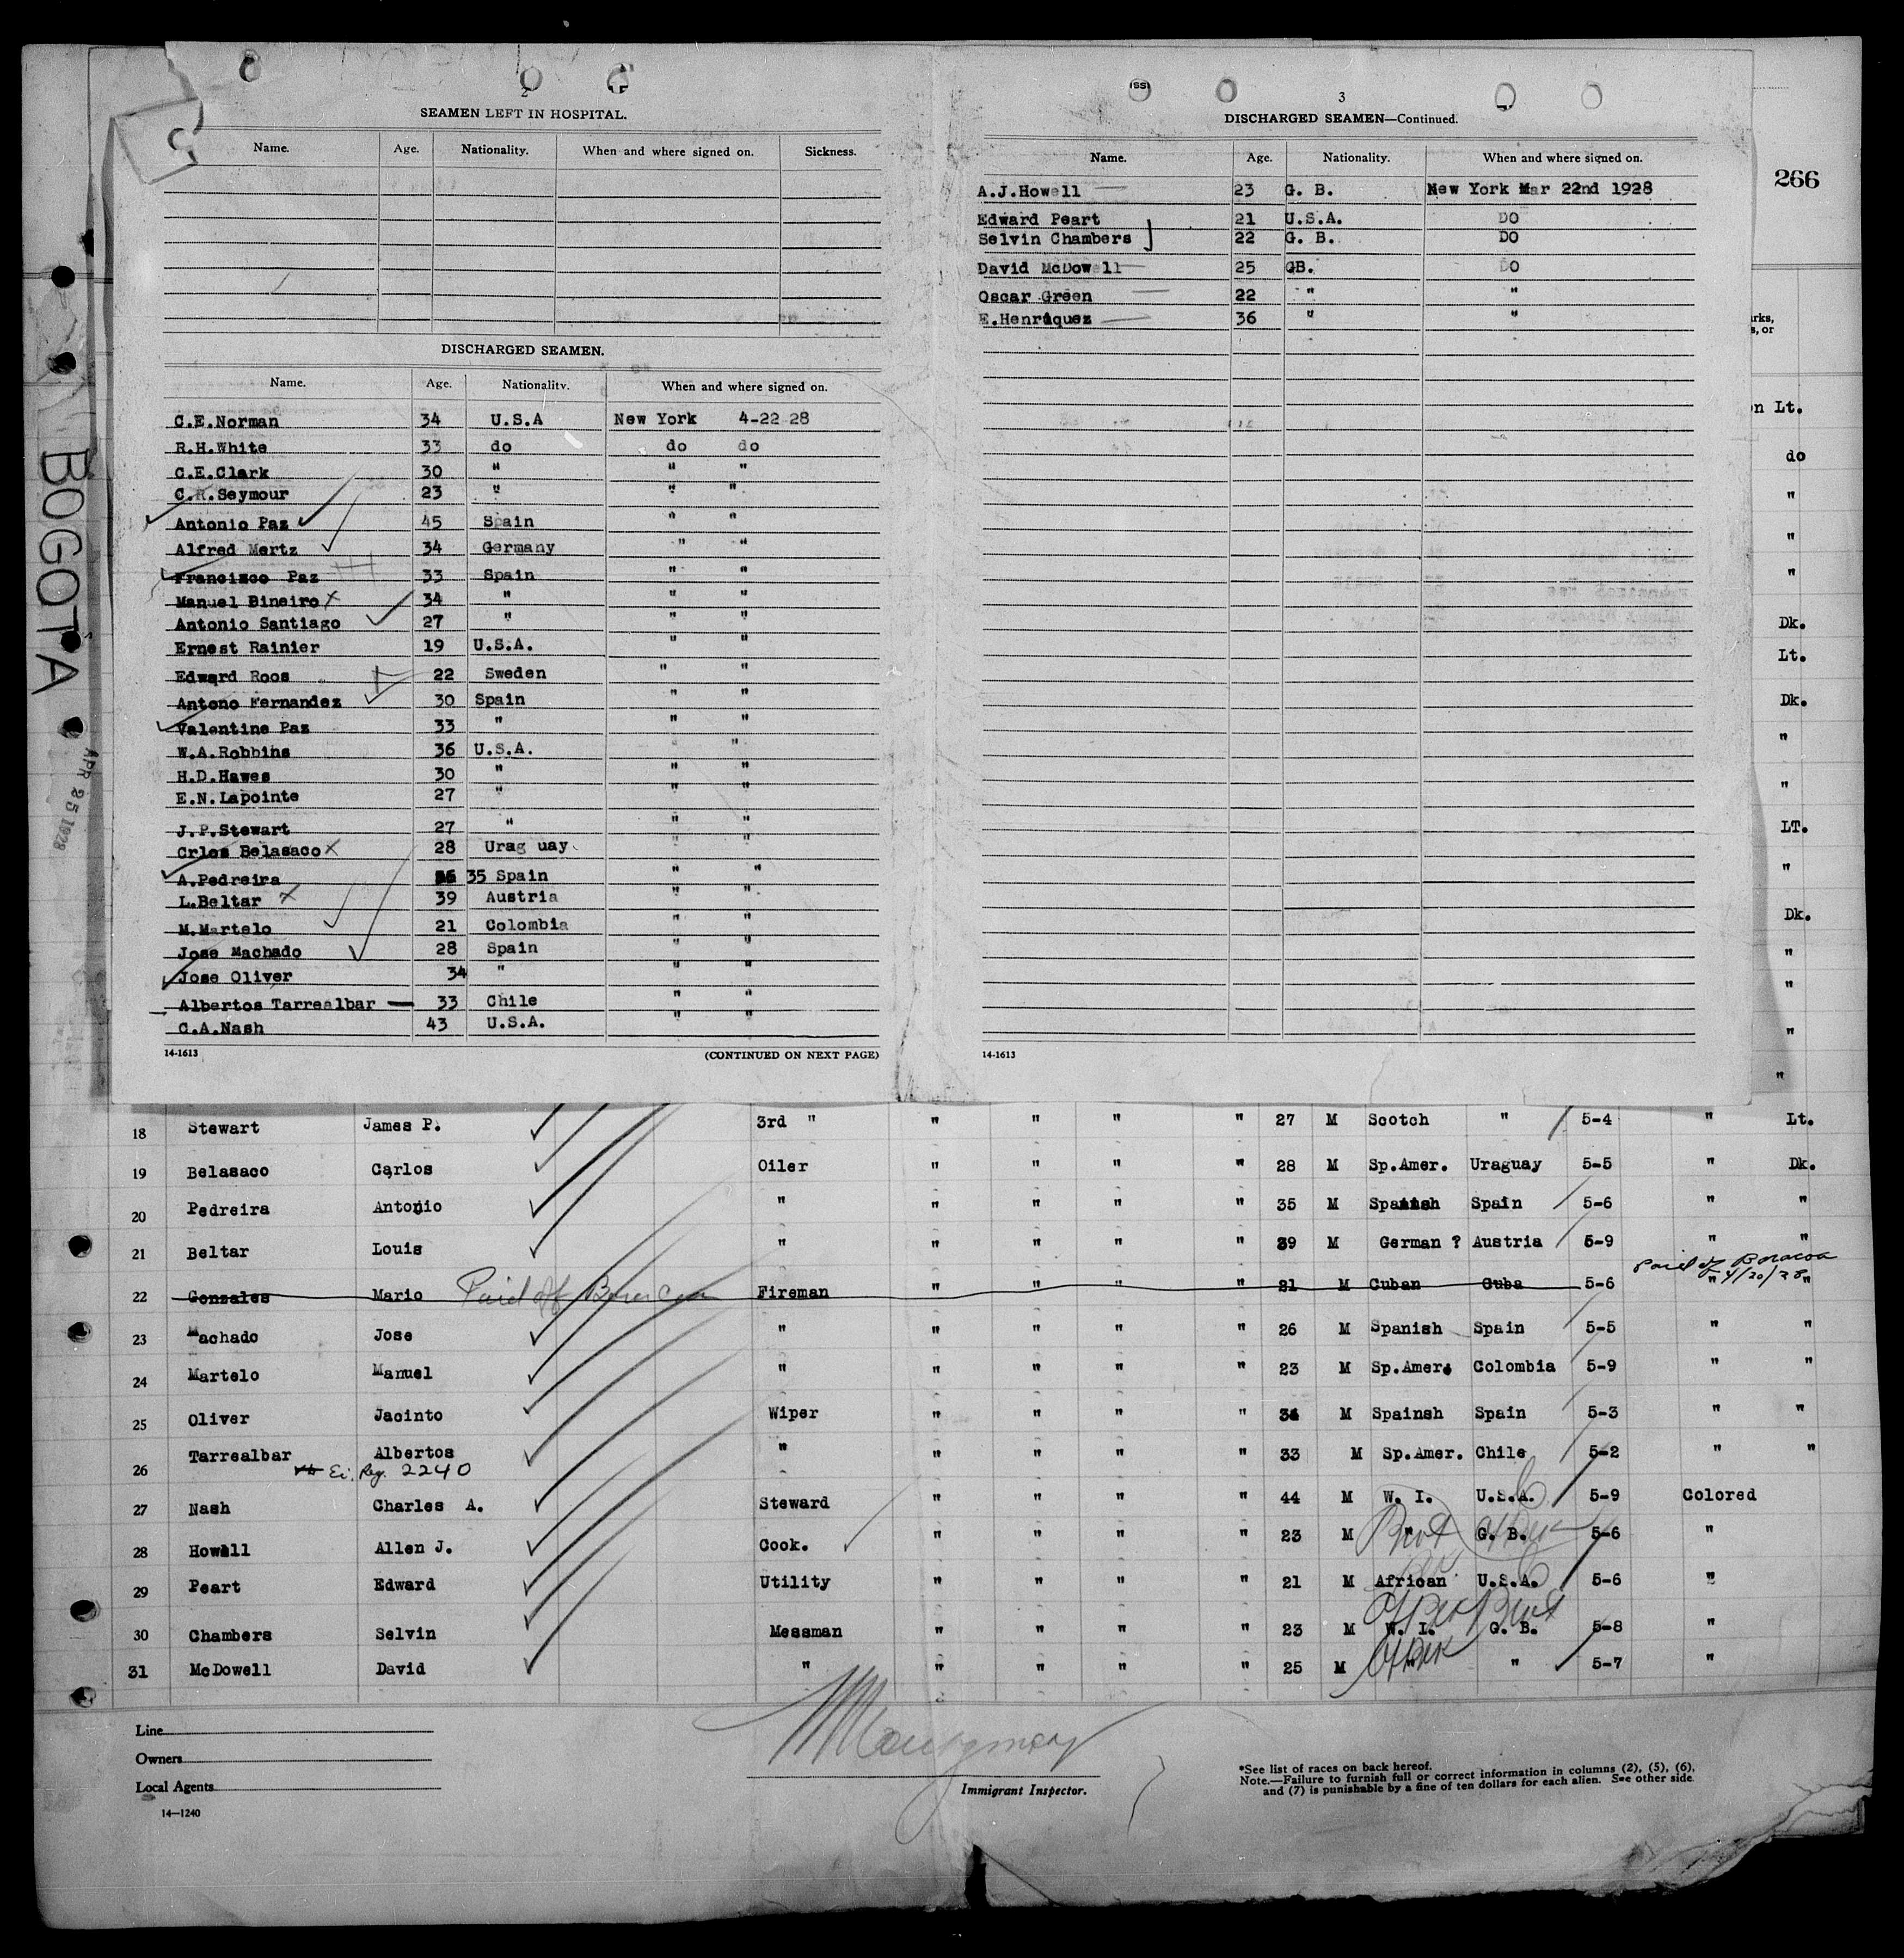 2
SEAMEN LEFT IN HOSPITAL.
Name. Age. Nationality. When and where signed on. Sickness.
DISCHARGED SEAMEN.
Name. Age. Nationality. When and where signed on.
C.E.Norman 34 U.S.A New York 4-22 28
R.H.White 33 do do do
C.E.Clark 30 " " "
C.R.Seymour 23 " " "
Antonio Paz 45 Spain " "
Alfred Mertz 34 Germany " "
Francisco Paz 33 Spain " "
Manuel Bineiro 34 " " "
Antonio Santiago 27 " " "
Ernest Rainier 19 U.S.A. " "
Edward Roos 22 Sweden " "
Antono Fernandez 30 Spain " "
Valentine Paz 33 " " "
W.A.Robbins 36 U.S.A. " "
H.D.Hawes 30 " " "
E.N.Lapointe 27 " " "
J.P.Stewart 27 " " "
Crlos Belasaco 28 Urag uay " "
A.Pedreira 35 Spain " "
L.Beltar 39 Austria " "
M.Martelo 21 Colombia " "
Jose Machado 28 Spain " "
Jose Oliver 34 " " "
Albertos Tarrealbar 33 Chile " "
C.A.Nash 43 U.S.A. " "
14-1613 (CONTINUED ON NEXT PAGE)
(SS)
3
DISCHARGED SEAMEN—Continued.
Name. Age. Nationality. When and where signed on.
A.J.Howell 23 G. B. New York Mar 22nd 1928
Edward Peart 21 U.S.A. DO
Selvin Chambers 22 G. B. DO
David McDowell 25 GB. DO
Oscar Green 22 " "
E.Henriquez 36 " "
14-1613
266
rks,
s, or
n Lt.
do
"
"
"
Dk.
Lt.
Dk.
"
"
LT.
"
Dk.
"
"
"
"
BOGOTA
APR 25 1928
18 Stewart James P. 3rd " " " " " 27 M Scotch " 5-4 " Lt.
19 Belasaco Carlos Oiler " " " " 28 M Sp.Amer. Uraguay 5-5 " Dk.
20 Pedreira Antonio " " " " " 35 M Spanish Spain 5-6 " "
21 Beltar Louis " " " " " 39 M German ? Austria 5-9 " "
22 Gonzales Mario Paid off Fireman " " " " 21 M Cuban Cuba 5-6 Paid off 4/20/28 " "
23 Machado Jose " " " " " 26 M Spanish Spain 5-5 " "
24 Martelo Manuel " " " " " 23 M Sp.Amer. Colombia 5-9 " "
25 Oliver Jacinto Wiper " " " " 34 M Spainsh Spain 5-3 " "
26 Tarrealbar Albertos " " " " " 33 M Sp.Amer. Chile 5-2 " "
Reg. 2240
27 Nash Charles A. Steward " " " " 44 M W. I. U.S.A. 5-9 Colored
28 Howell Allen J. Cook. " " " " 23 M " G. B. 5-6 "
29 Peart Edward Utility " " " " 21 M African U.S.A. 5-6 "
30 Chambers Selvin Messman " " " " 23 M W. I. G. B. 5-8 "
31 McDowell David " " " " " 25 M " " 5-7 "
Line
Owners
Local Agents
14—1240
Montgomery
Immigrant Inspector.
*See list of races on back hereof.
Note.—Failure to furnish full or correct information in columns (2), (5), (6),
and (7) is punishable by a fine of ten dollars for each alien. See other side